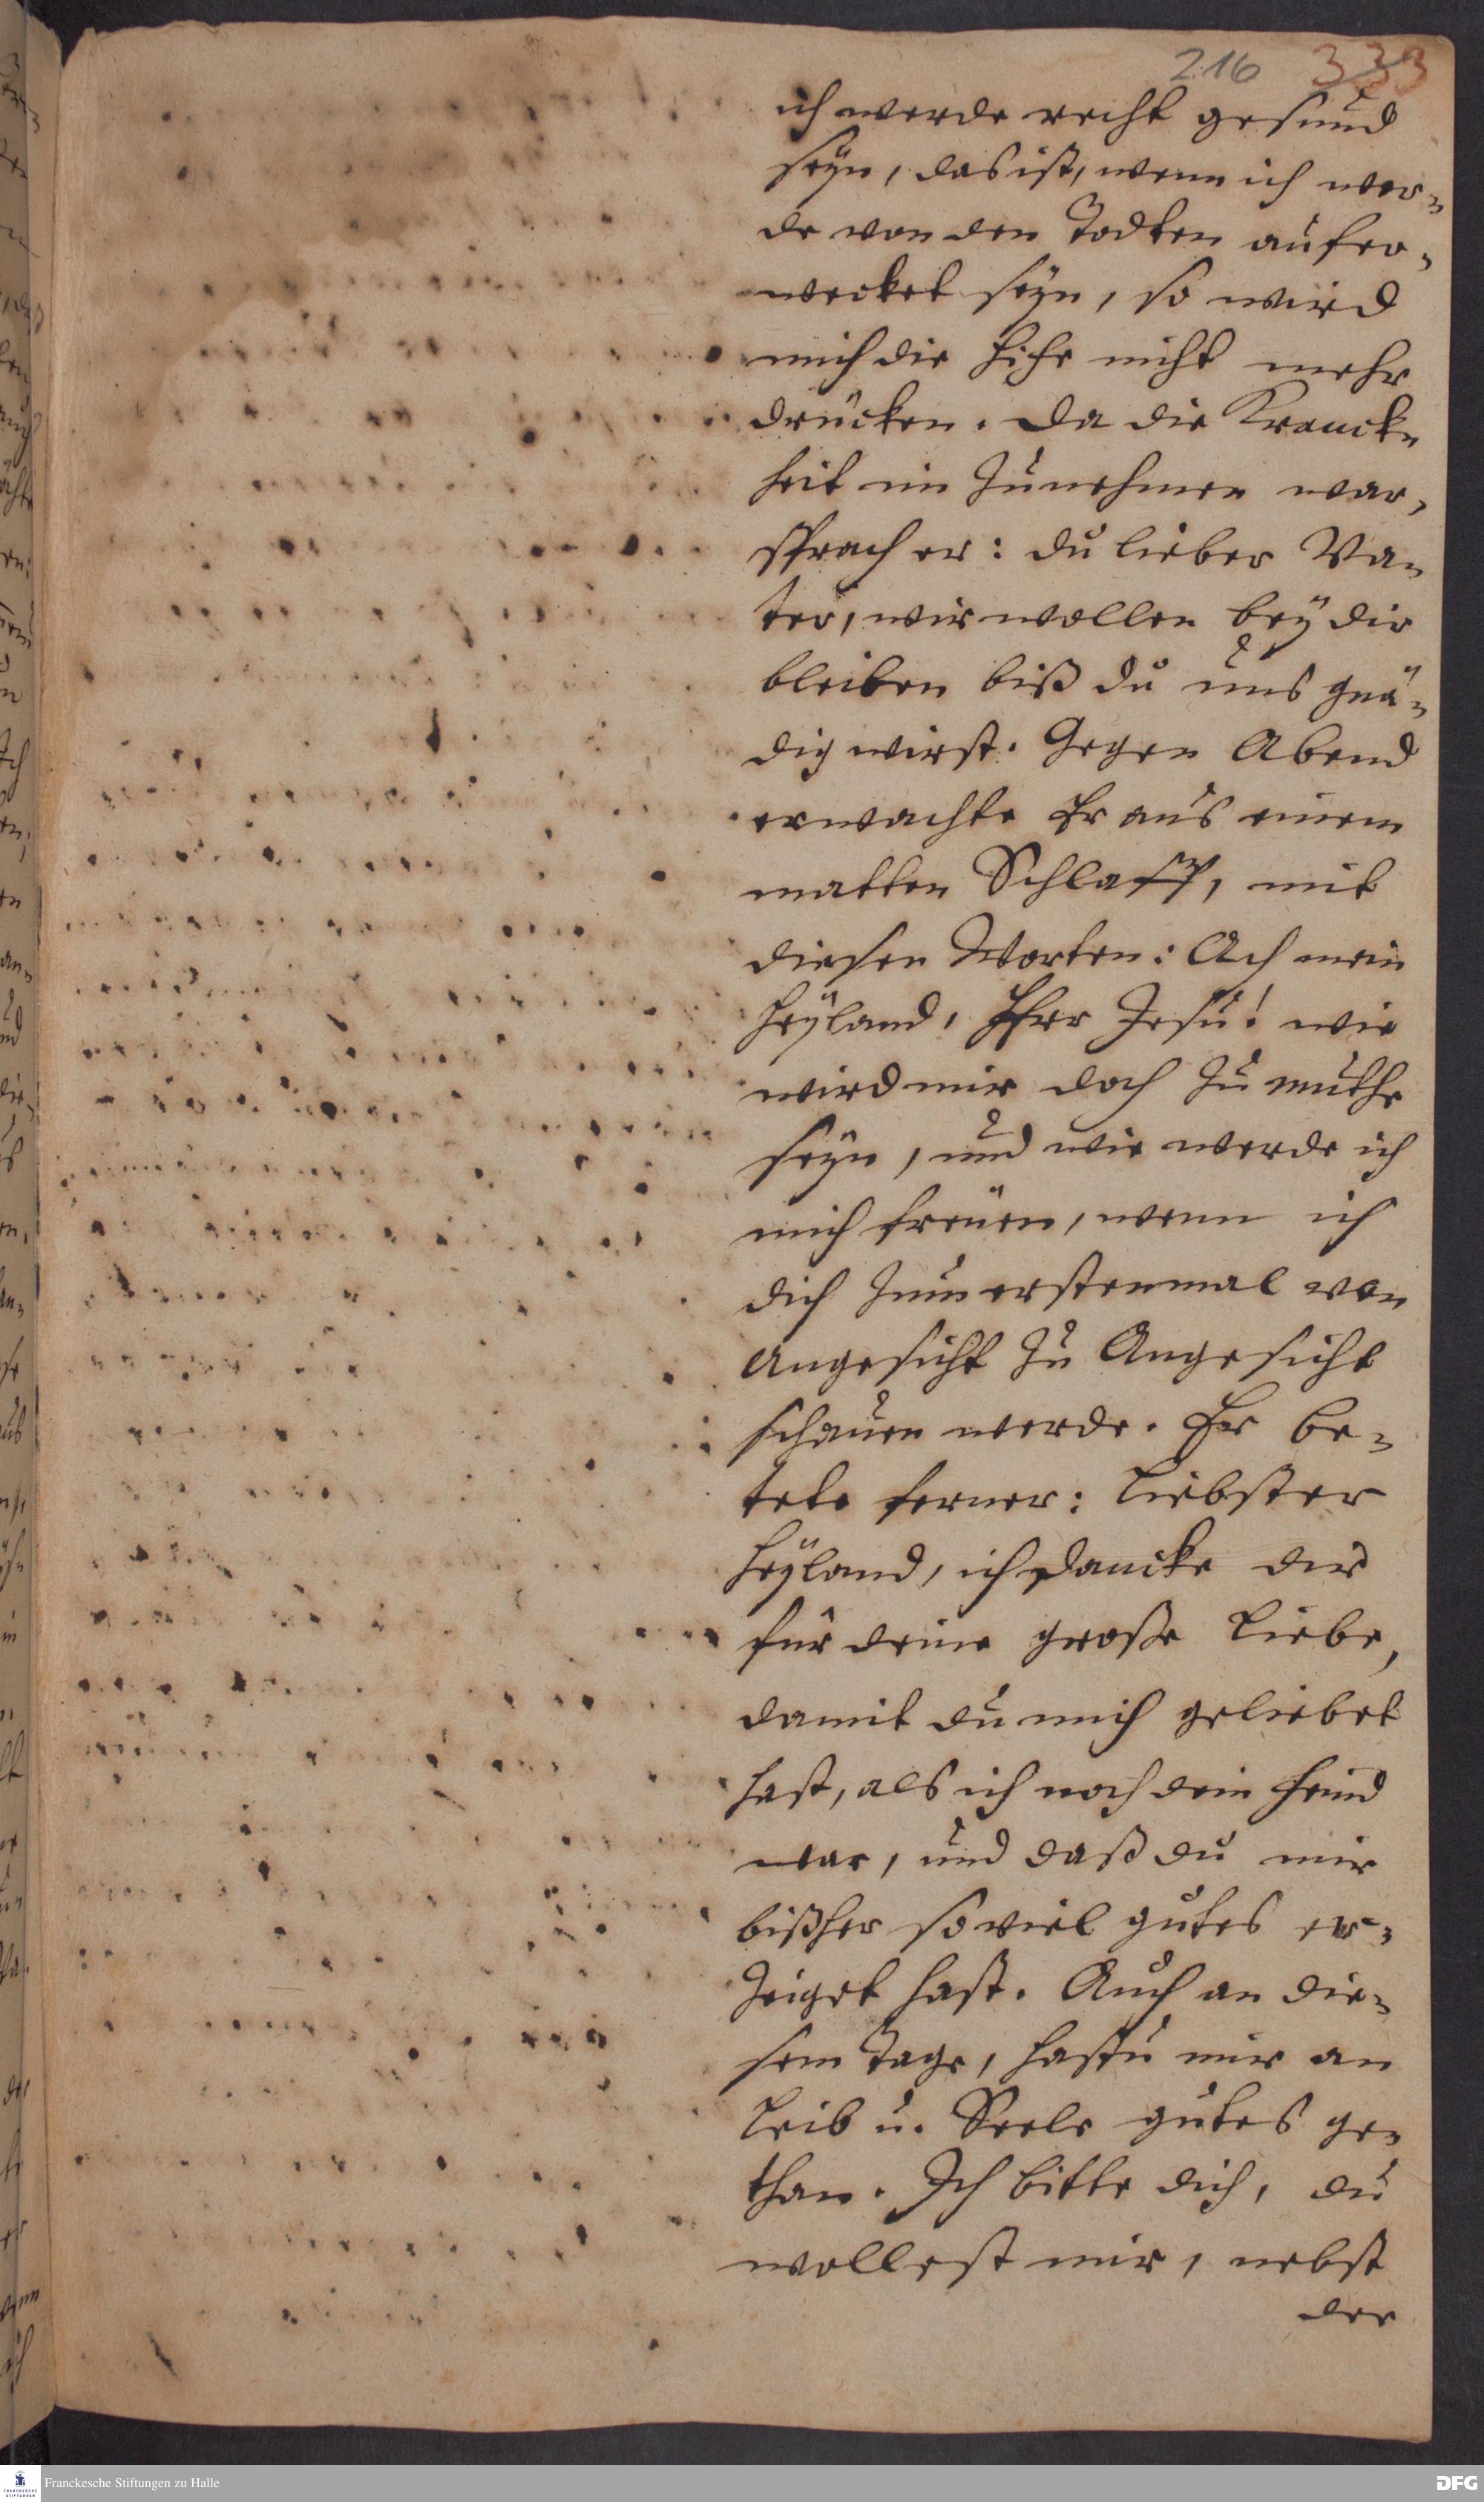 216 333
ich werde recht gesund
seyn, das ist, wenn ich wer-
de von den Todten aufer-
wecket seyn, so wird
mich die Hitze nicht mehr
drücken. Da die Kranck-
heit im Zunehmen war,
sprach er: du lieber Va-
ter, wir wollen bey dir
bleiben biß du uns gnä-
dig wirst. Gegen Abend
erwachte Er aus einem
matten Schlaff, mit
diesen Worten: Ach mein
Heyland, Herr Jesu! wie
wird mir doch zu muthe
seyn, und wie werde ich
mich freuen, wenn ich
dich zum erstenmal von
Angesicht zu Angesicht
schauen werde. Er be-
tete ferner: Liebster
Heyland, ich dancke dir
für deine große Liebe,
damit du mich geliebet
hast, als ich noch dein Feind
war, und daß du mir
bißher so viel gutes er-
zeiget hast. Auch an die-
sem Tage, hastu mir an
Leib u. Seele gutes ge-
than. Ich bitte dich, du
wollest mir, nebst
der
Franckesche Stiftungen zu Halle
DFG